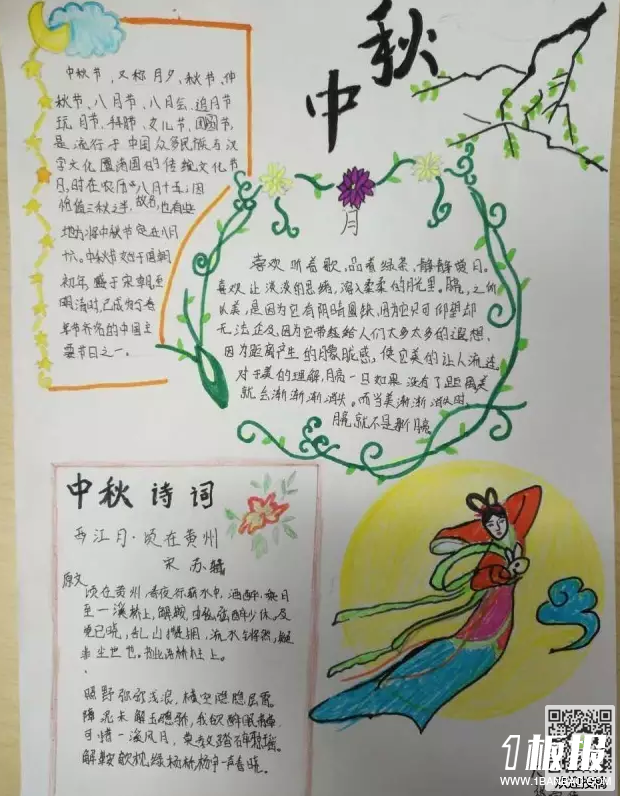 中秋
中秋节，又称月夕、秋节、仲
秋节、八月节、八月会、追月节
玩月节、拜月节、女儿节、团圆节，
是流行于中国众多民族与汉
字文化圈诸国的传统文化节
日，时在农历八月十五；因
恰值三秋之半，故名，也有些
地方将中秋节定在八月
十六。中秋节始于唐朝
初年，盛于宋朝，至
明清时，已成为了与
春节齐名的中国主
要节日之一。
月
喜欢听着歌，品着绿茶，静静赏月。
喜欢让淡淡的思绪，溶入柔柔的月光里。之所
以美，是因为它有阴晴圆缺，因为它只可仰望却
无法企及，因为它带给给人们太多太多的遐想，
因为距离产生的月朦胧感，使它美的让人流连。
对于美的理解，月亮一旦如果没有了距离美
就会渐渐渐渐消失。而当美渐渐消失时，
就不是
中秋诗词
西江月·顷在黄州
宋 苏轼
原文
顷在黄州，春夜行蕲水中，酒醉，乘月
至一溪桥上，解鞍，曲肱醉卧少休。及
觉已晓，乱山攒拥，流水锵然，疑
非尘世也。书此语桥柱上。
照野弥弥浅浪，横空隐隐层霄。
障泥未解玉骢骄，我欲醉眠芳草。
可惜一溪风月，莫教踏碎琼瑶。
解鞍欹枕绿杨桥，杜宇一声春晓。
1板报
WWW.1BANBAO.COM
欢迎投稿